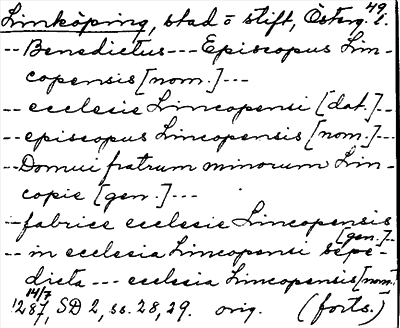 49.
Linköping, stad o stift, Österg. l.
-- Benedictus --- Episcopus Lin-
copensis [nom.] ---
-- ecclesie Lincopensi [dat.] --
-- episcopus Lincopensis [nom.] ---
-- Domui fratrum minorum Lin-
copie [gen.] ---
-- fabrice ecclesie Lincopensis
[gen.] --
-- in ecclesia Lincopensi sepe-
dicta --- ecclesia Lincopensis [nom.]
14/7
1287, SD 2, ss. 28, 29. orig. (forts.)